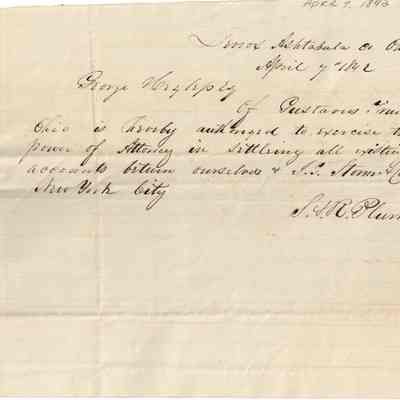 April 7, 1842
Lenox Ashtabula Co O
April 7th 1842
George Hezlep Esq
Of Gustavus Trum
Ohio is hereby authorized to exercise t
power of Attorney in settleing all existin
accounts between ourselves &
New York City
S. & R. Plum